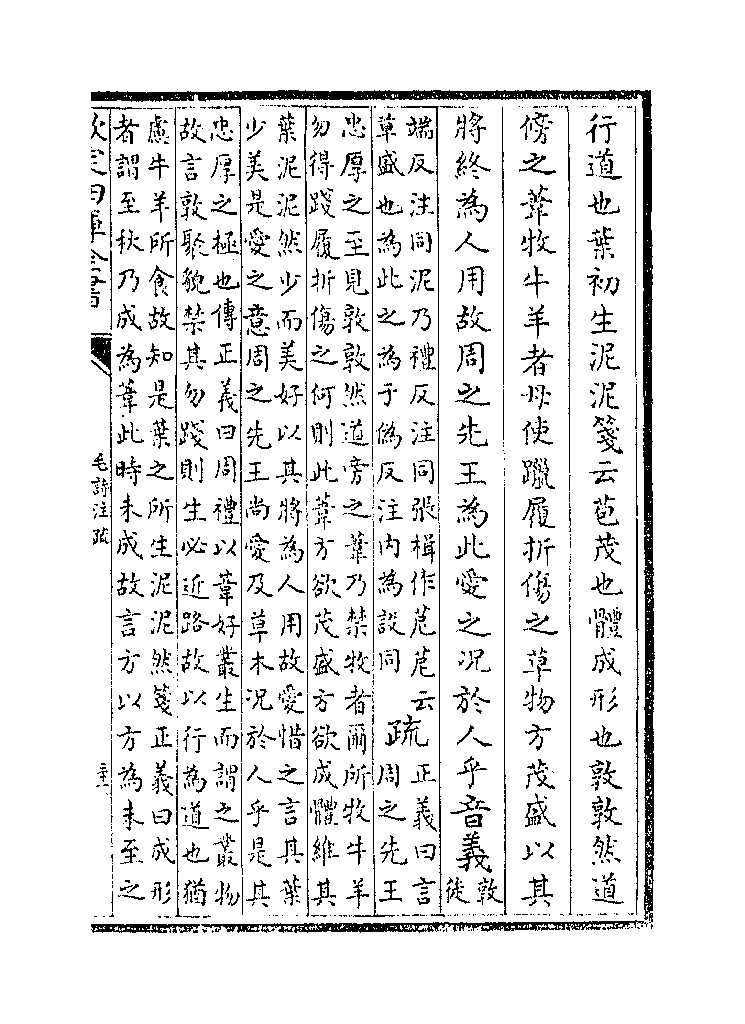 行道也葉初生泥泥箋云苞茂也體成形也敦敦然道
傍之葦牧牛羊者毋使躐履折傷之草物方茂盛以其
將終為人用故周之先王為此愛之况於人乎音義敦
徒
端反注同泥乃禮反注同張楫作苨苨云
草盛也為此之為于偽反注内為設同
疏
正義曰言
周之先王
忠厚之至見敦敦然道旁之葦乃禁牧者爾所牧牛羊
勿得踐履折傷之何則此葦方欲茂盛方欲成體維其
葉泥泥然少而美好以其將為人用故愛惜之言其葉
少美是愛之意周之先王尚愛及草木况於人乎是其
忠厚之極也傳正義曰周禮以葦好叢生而謂之叢物
故言敦聚貌禁其勿踐則生必近路故以行為道也猶
慮牛羊所食故知是葉之所生泥泥然箋正義曰成形
者謂至秋乃成為葦此時未成故言方以方為未至之
欽定四庫全書
毛詩注疏